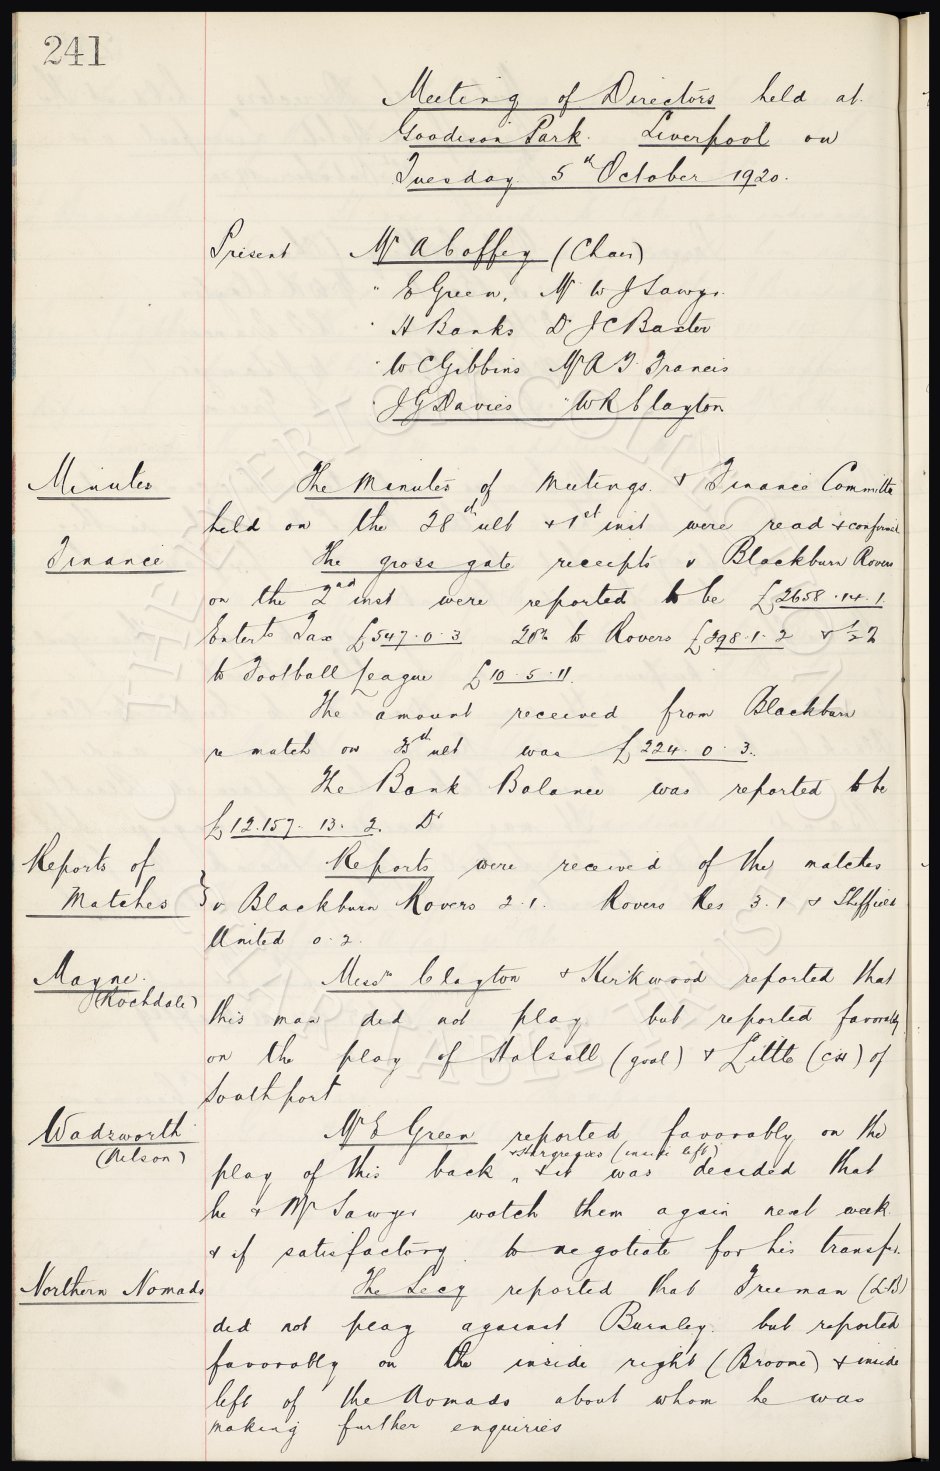 241
Meeting of Directors held at
Goodison Park. Liverpool on
Tuesday 5th October 1920.
Present Mr A Coffey (Chair)
" E Green, Mr W J Sawyer
" H Banks Dr J C Baxter
" W C Gibbins Mr A T Francis
" J G Davies " W R Clayton
Minutes The Minutes of Meetings & Finance Committee
held on the 28th ult & 1st inst were read & confirmed
Finance The gross gate receipts v Blackburn Rovers
on the 2nd inst were reported to be £2658.14.1.
Entert Tax £547.0.3 20% to Rovers £398.1.2 & ½%
to Football League £10.5.11
The amount received from Blackburn
re match on ult was £224.0.3.
The Bank Balance was reported to be
£12.157.13.2. Dr
Reports of Matches } Reports were received of the matches
v Blackburn Rovers 2.1. Rovers Res 3.1 & Sheffield
United 0.2.
Mayne (Rochdale) Messrs Clayton & Kirkwood reported that
this man did not play but reported favorably
on the play of Halsall (goal) & Little (CH) of
Southport
Wadsworth (Nelson) Mr E Green reported favorably on the
play of this back & Hargreaves (inside left) & it was decided that
he & Mr Sawyer watch them again next week
& if satisfactory to negotiate for his transfer.
Northern Nomads The Secy reported that Freeman (L.B)
did not play against Burnley but reported
favorably on the inside right (Broome) & inside
left of the Nomads about whom he was
making further enquiries